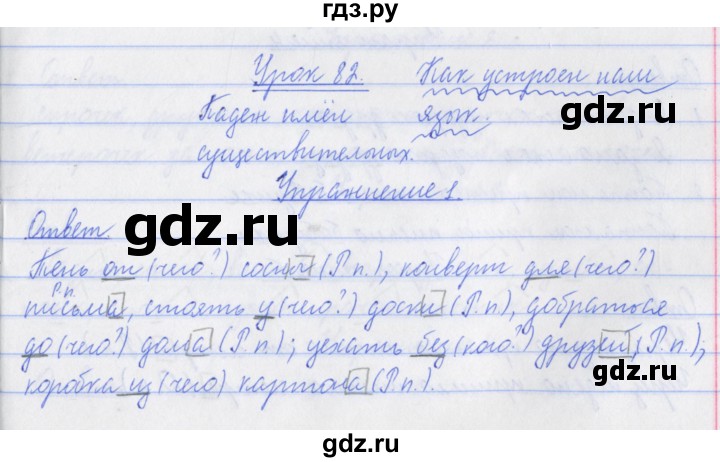 гдз.ру
Урок 82. Как устроен наш
Падеж имён язык.
существительных.
Упражнение 1.
gdz.ru gdz.ru
Ответ.
Тень от (чего?) сосны (Р.п.), конверт для (чего?)
Р.п.
письма, стоять у (чего?) доски (Р.п), добраться
до (чего?) дома (Р.п.); уехать без (кого?) друзей, (Р.п.);
коробка из (чего) картона (Р.п.).
gdz.ru
gdz.ru